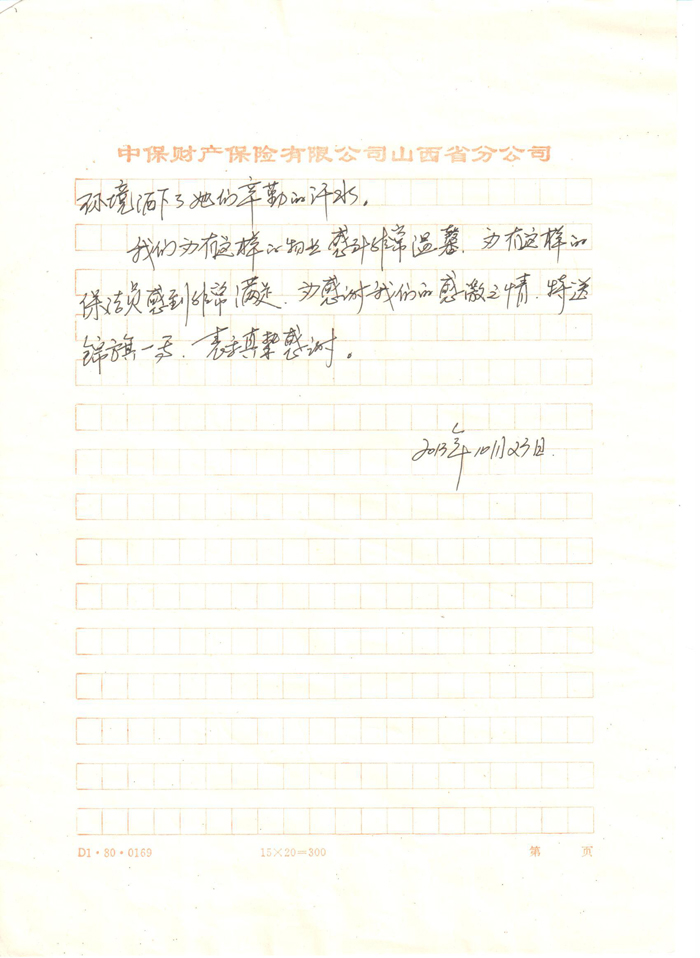 中保财产保险有限公司山西省分公司
环境洒下了她们辛勤的汗水。
我们为有这样的物业感到非常温馨、为有这样的
保洁员感到非常满足、为感谢我们的感激之情、特送
锦旗一面、表示真挚感谢。
2013年10月23日.
D1·80·0169 15×20=300 第 页